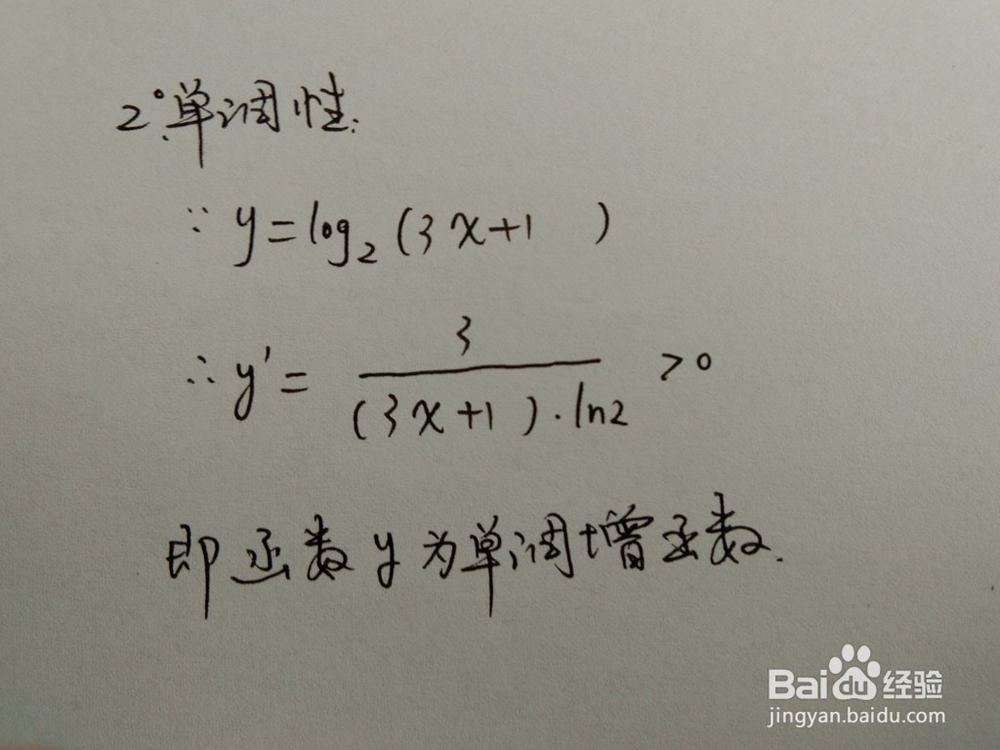 2°.单调性:
∵ y=log₂(3x+1 )
∴ y'= 3/((3x+1)·ln2) >0
即函数y为单调增函数.
Baidu经验
jingyan.baidu.com